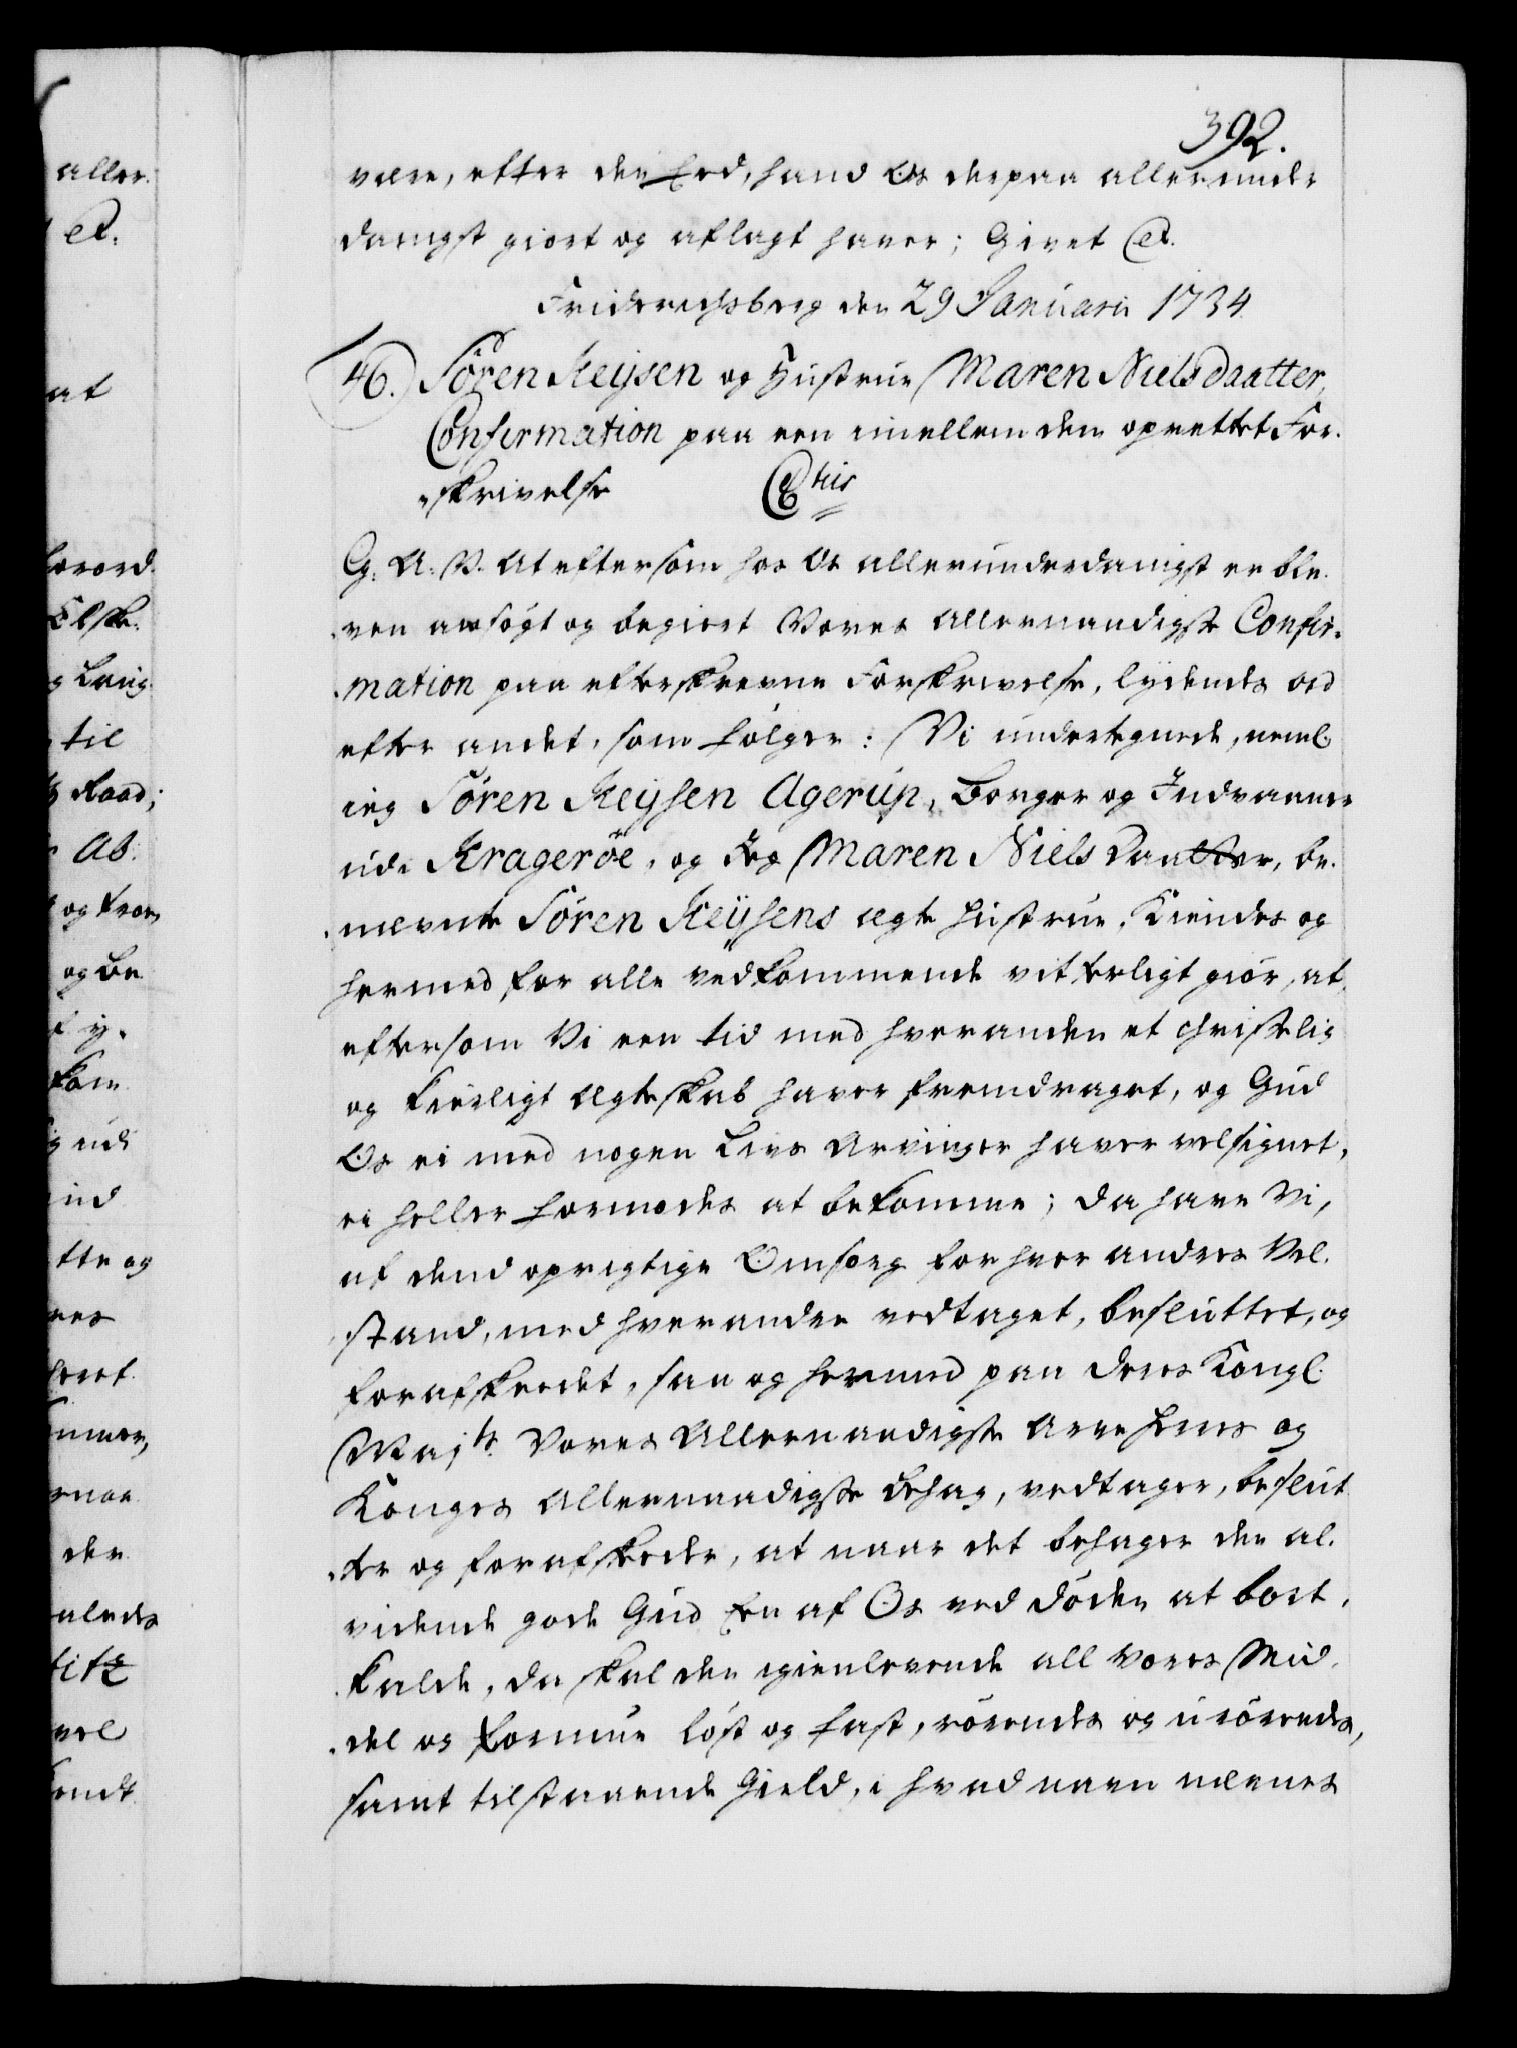 392.
være, efter den Eed, hand Os derpaa allerunder
danigst giort og aflagt haver; Givet &ct.
Friderichsberg den 29 Januarii 1734.
46. Sören Keysen og Hustrue Maren Nielsdaatter,
Confirmation paa een imellem dem oprettet For-
skrivelse
G: A: V. At eftersom hos Os allerunderdanigst er ble-
ven ansögt og begiert Vores Allernaadigste Confir-
mation paa efterskrevne Forskrivelse, lydendes ord
efter andet, som fölger: Vi undertegnede, neml.
ieg Sören Keysen Agerup, Borger og Indvaaner
udi Krageröe, og Jeg Maren Niels Daatter, be-
nævnte Sören Keysens ægte Hustrue, Kiendes og
hermed for alle vedkommende vitterligt giör, at
eftersom Vi een tid med hverandre et christelig
og kierligt Ægteskab haver fremdraget, og Gud
Os ei med nogen Livs Arvinger haver velsignet,
ei heller formodes at bekomme; da have Vi,
af dend oprigtige Omsorg for hver andres Vel-
stand, med hverandre vedtaget, besluttet, og
forafskeedet, saa og hermed paa Deres Kongl.
Majts. Vores Allernaadigste Arve Herres og
Konges Allernaadigste Behag, vedtager, beslut-
ter og forafskeder, at naar det behager den al-
vidende gode Gud Een af Os ved döden at bort-
kalde, da skal den igienlevende all Vores Mid-
del og Formue löst og fast, rörendes og urörendes,
samt tilstaaende Gield, i hvad navn nævnes
aller-
et.
at
forord-
Elske-
til
Raad;
Ab-
og Be
udi
ind
tte og
der
vel